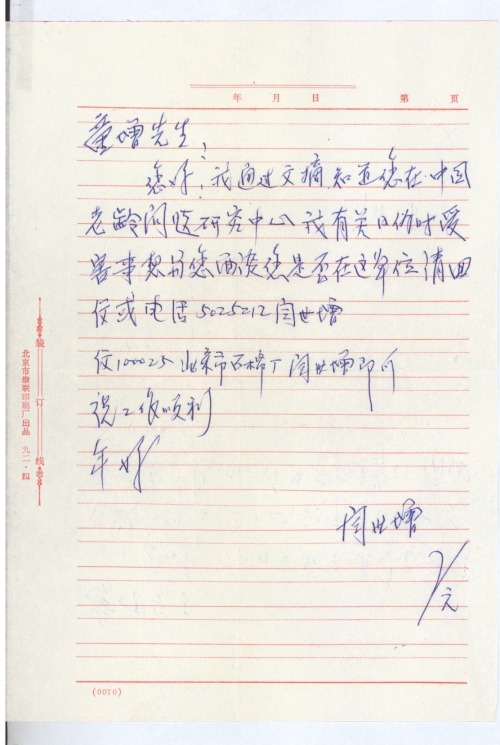 年 月 日 第 页
童增先生：
您好！我通过文摘知道您在中国
老龄问题研究中心我有关日份时受
害事想与您面谈您是否在这单位请回
信或电话5025212闫世增
信100025北京市石棉厂闫世增即可
祝工作顺利
年好
闫世增
1/元
装订线
北京市燕联印刷厂出品 九二·四
(0070)